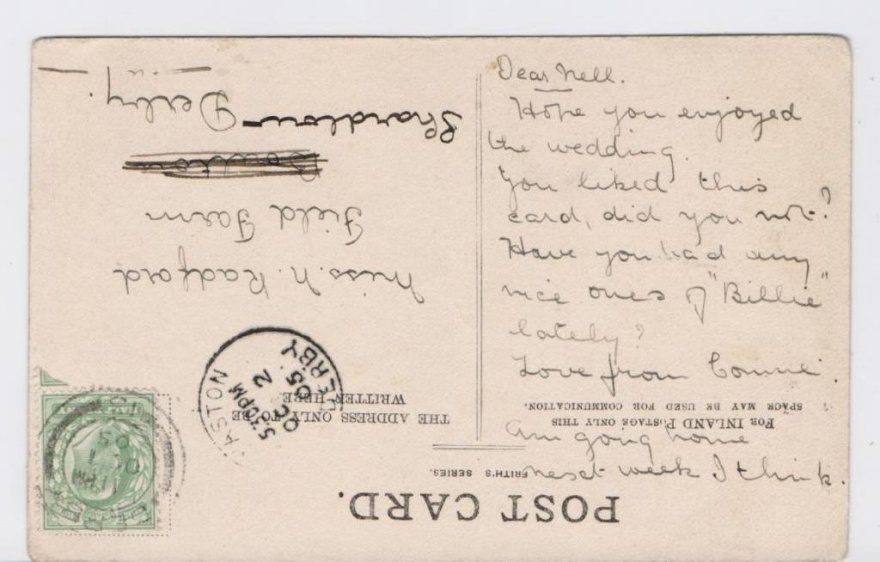 Dear Nell.
Hope you enjoyed
the wedding.
You liked this
card, did you not?
Have you had any
nice ones of "Billie"
lately?
Love from Connie.
Am going home
next week I think.
POST CARD.
FRITH'S SERIES.
FOR INLAND POSTAGE ONLY THIS
SPACE MAY BE USED FOR COMMUNICATION.
THE ADDRESS ONLY TO BE
WRITTEN HERE
Miss. N. Radford
Field Farm
Shardlow
Derby.
ASTON
5.30PM
OC 2
05
DERBY